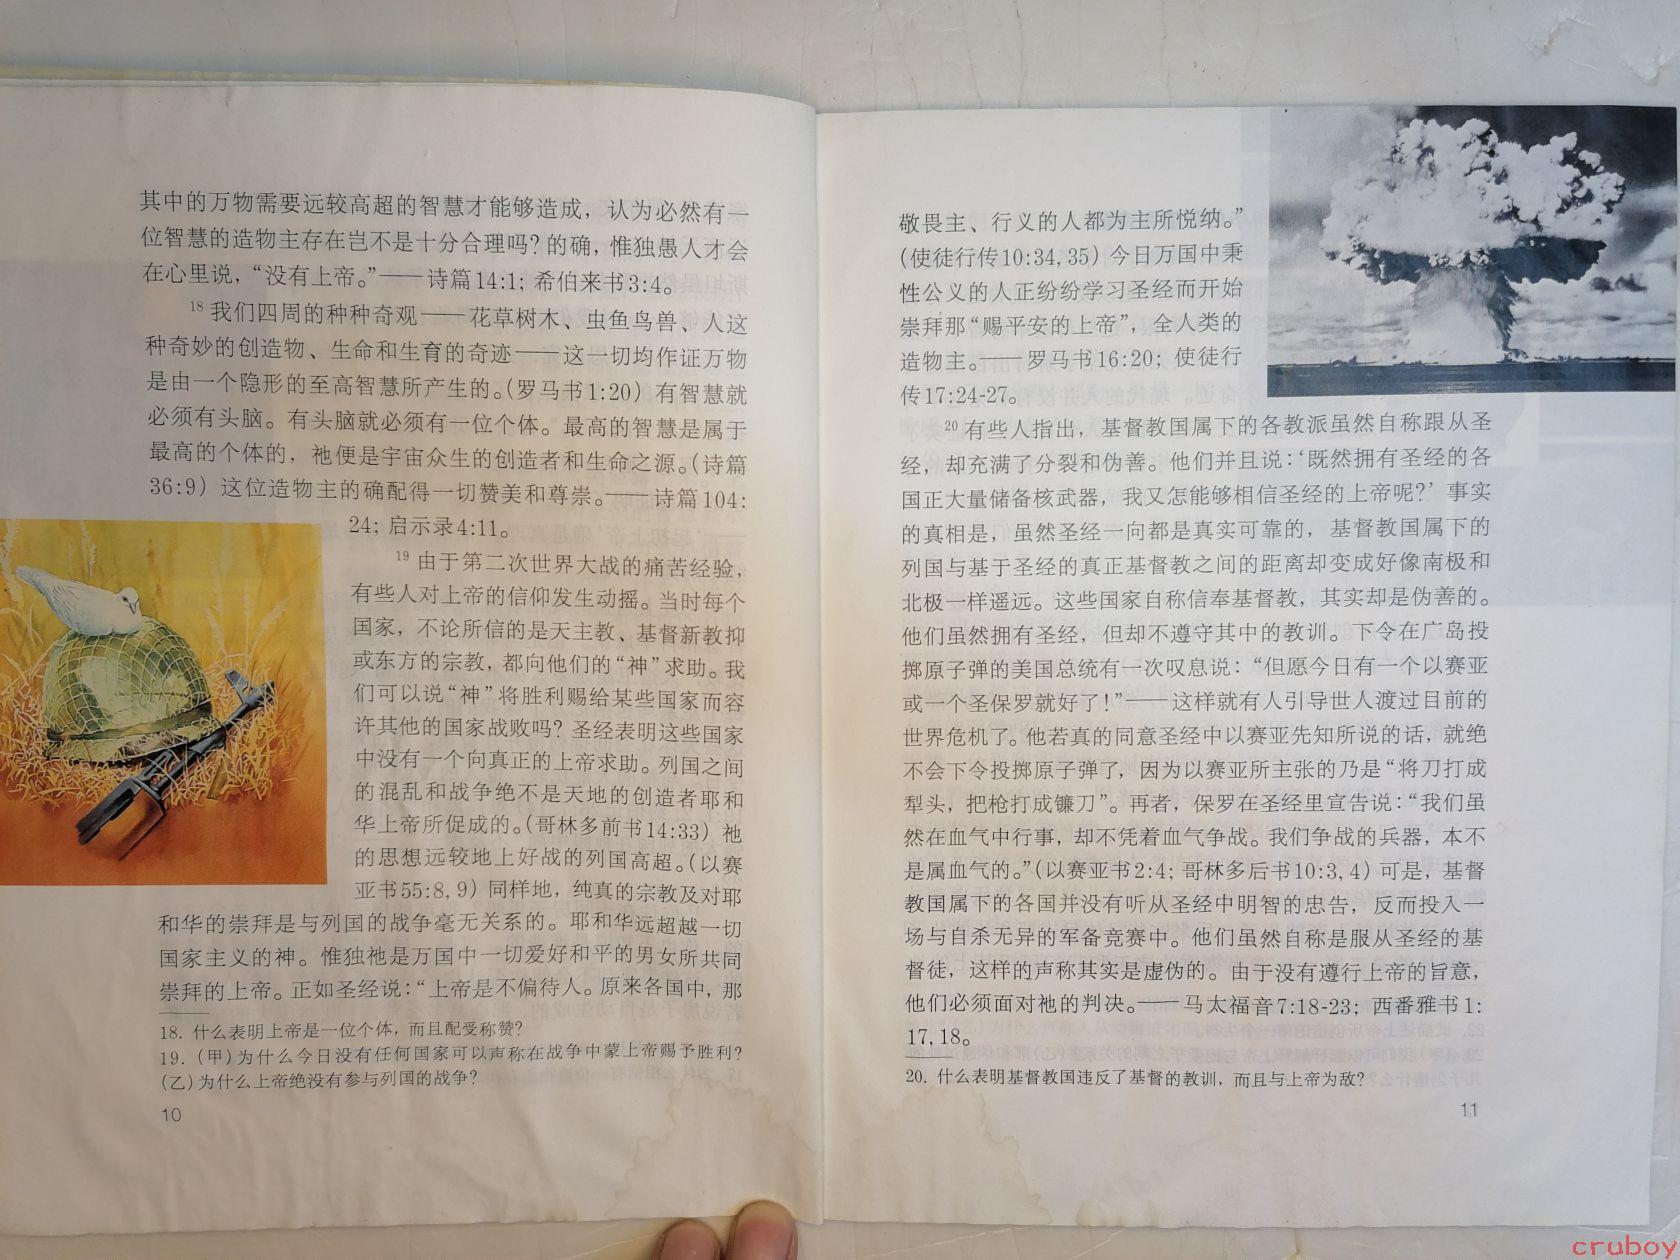 其中的万物需要远较高超的智慧才能够造成，认为必然有一
位智慧的造物主存在岂不是十分合理吗？的确，惟独愚人才会
在心里说，“没有上帝。”——诗篇14:1；希伯来书3:4。
18 我们四周的种种奇观——花草树木、虫鱼鸟兽、人这
种奇妙的创造物、生命和生育的奇迹——这一切均作证万物
是由一个隐形的至高智慧所产生的。（罗马书1:20）有智慧就
必须有头脑。有头脑就必须有一位个体。最高的智慧是属于
最高的个体的，祂便是宇宙众生的创造者和生命之源。（诗篇
36:9）这位造物主的确配得一切赞美和尊崇。——诗篇104:
24；启示录4:11。
19 由于第二次世界大战的痛苦经验，
有些人对上帝的信仰发生动摇。当时每个
国家，不论所信的是天主教、基督新教抑
或东方的宗教，都向他们的“神”求助。我
们可以说“神”将胜利赐给某些国家而容
许其他的国家战败吗？圣经表明这些国家
中没有一个向真正的上帝求助。列国之间
的混乱和战争绝不是天地的创造者耶和
华上帝所促成的。（哥林多前书14:33）祂
的思想远较地上好战的列国高超。（以赛
亚书55:8,9）同样地，纯真的宗教及对耶
和华的崇拜是与列国的战争毫无关系的。耶和华远超越一切
国家主义的神。惟独祂是万国中一切爱好和平的男女所共同
崇拜的上帝。正如圣经说：“上帝是不偏待人。原来各国中，那
18. 什么表明上帝是一位个体，而且配受称赞？
19.（甲）为什么今日没有任何国家可以声称在战争中蒙上帝赐予胜利？
（乙）为什么上帝绝没有参与列国的战争？
10
敬畏主、行义的人都为主所悦纳。”
（使徒行传10:34,35）今日万国中秉
性公义的人正纷纷学习圣经而开始
崇拜那“赐平安的上帝”，全人类的
造物主。——罗马书16:20；使徒行
传17:24-27。
20 有些人指出，基督教国属下的各教派虽然自称跟从圣
经，却充满了分裂和伪善。他们并且说：‘既然拥有圣经的各
国正大量储备核武器，我又怎能够相信圣经的上帝呢？’事实
的真相是，虽然圣经一向都是真实可靠的，基督教国属下的
列国与基于圣经的真正基督教之间的距离却变成好像南极和
北极一样遥远。这些国家自称信奉基督教，其实却是伪善的。
他们虽然拥有圣经，但却不遵守其中的教训。下令在广岛投
掷原子弹的美国总统有一次叹息说：“但愿今日有一个以赛亚
或一个圣保罗就好了！”——这样就有人引导世人渡过目前的
世界危机了。他若真的同意圣经中以赛亚先知所说的话，就绝
不会下令投掷原子弹了，因为以赛亚所主张的乃是“将刀打成
犁头，把枪打成镰刀”。再者，保罗在圣经里宣告说：“我们虽
然在血气中行事，却不凭着血气争战。我们争战的兵器，本不
是属血气的。”（以赛亚书2:4；哥林多后书10:3,4）可是，基督
教国属下的各国并没有听从圣经中明智的忠告，反而投入一
场与自杀无异的军备竞赛中。他们虽然自称是服从圣经的基
督徒，这样的声称其实是虚伪的。由于没有遵行上帝的旨意，
他们必须面对祂的判决。——马太福音7:18-23；西番雅书1:
17,18。
20. 什么表明基督教国违反了基督的教训，而且与上帝为敌？
11
cruboy